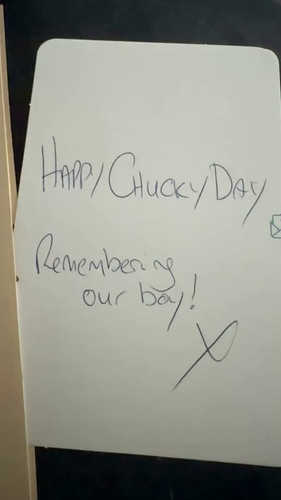 HAPPY CHUCKY DAY
Remembering
our boy!
X